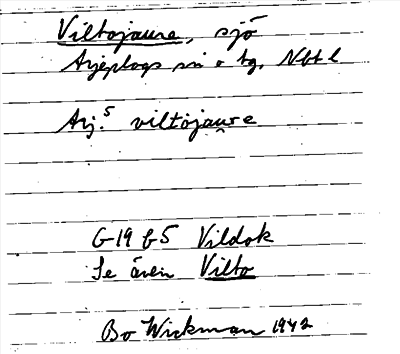 Viltojaure, sjö
Arjeplogs sn o tg, Nbtl
Arj.5 viltojau̯re
G-19 f5 Vildok
Se även Vilto
Bo Wickman 1942